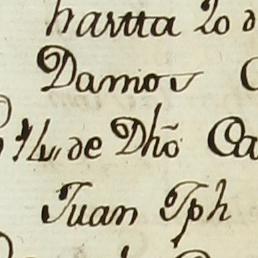 hartta 20 d
Damos C
14,, de Dhõ Ca
Juan Jph